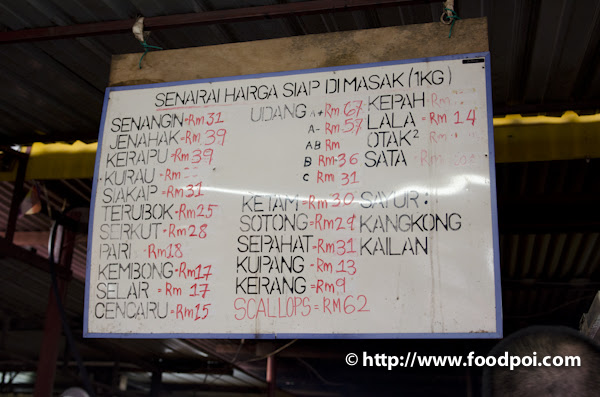 SENARAI HARGA SIAP DIMASAK (1KG)
SENANGIN = Rm 31
JENAHAK = Rm 39
KERAPU = Rm 39
KURAU = Rm
SIAKAP = Rm 31
TERUBOK = Rm 25
SEIRKUT = Rm 28
PARI = Rm 18
KEMBONG = Rm 17
SELAR = Rm 17
CENCARU = Rm 15
UDANG A+ Rm 67
A- Rm 57
AB Rm
B Rm 36
C Rm 31
KETAM = Rm 30
SOTONG = Rm 29
SEPAHAT = Rm 31
KUPANG = Rm 13
KERANG = Rm 9
SCALLOPS = RM 62
KEPAH Rm
LALA = Rm 14
OTAK² Rm
SATA Rm
SAYUR :
KANGKONG
KAILAN
© http://www.foodpoi.com